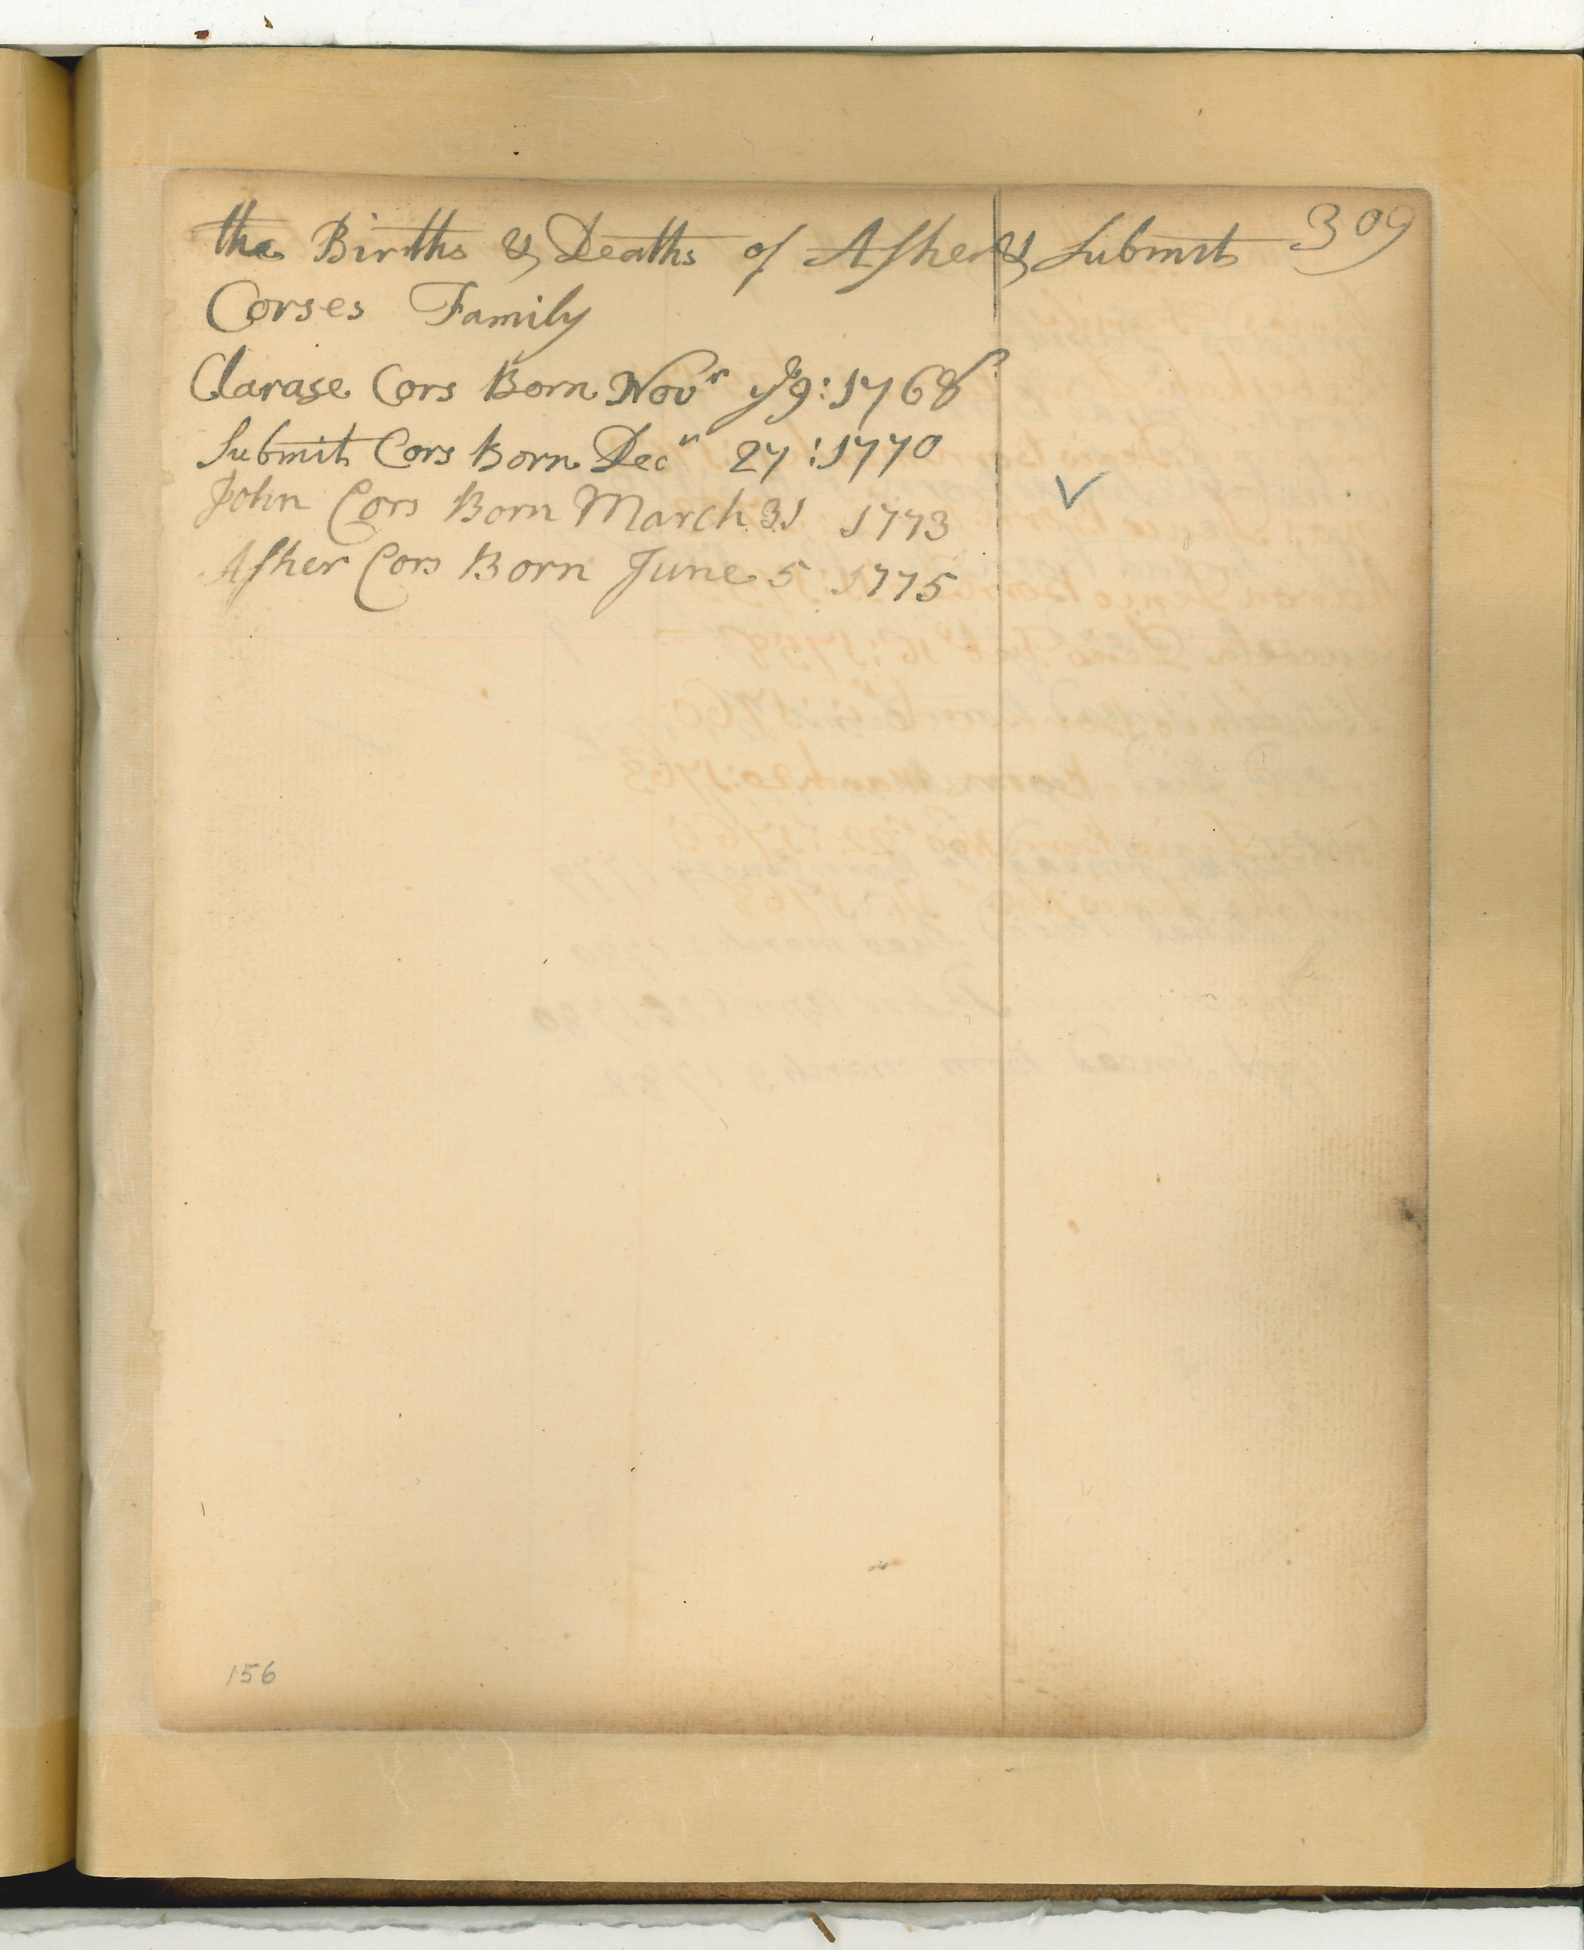 the Births & Deaths of Asher & Submit 309
Corses Family
Clarase Cors Born Novr ye 9: 1768
Submit Cors Born Decr 27: 1770
John Cors Born March 31 1773
Asher Cors Born June 5 1775
156